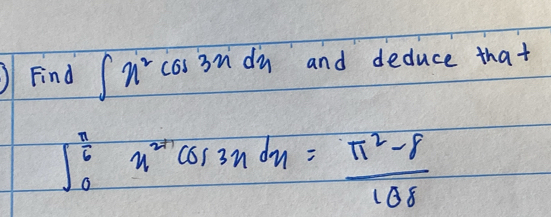 ) Find ∫ x² cos 3x dx and deduce that
∫₀^(π/6) x² cos 3x dx = (π² - 8)/108